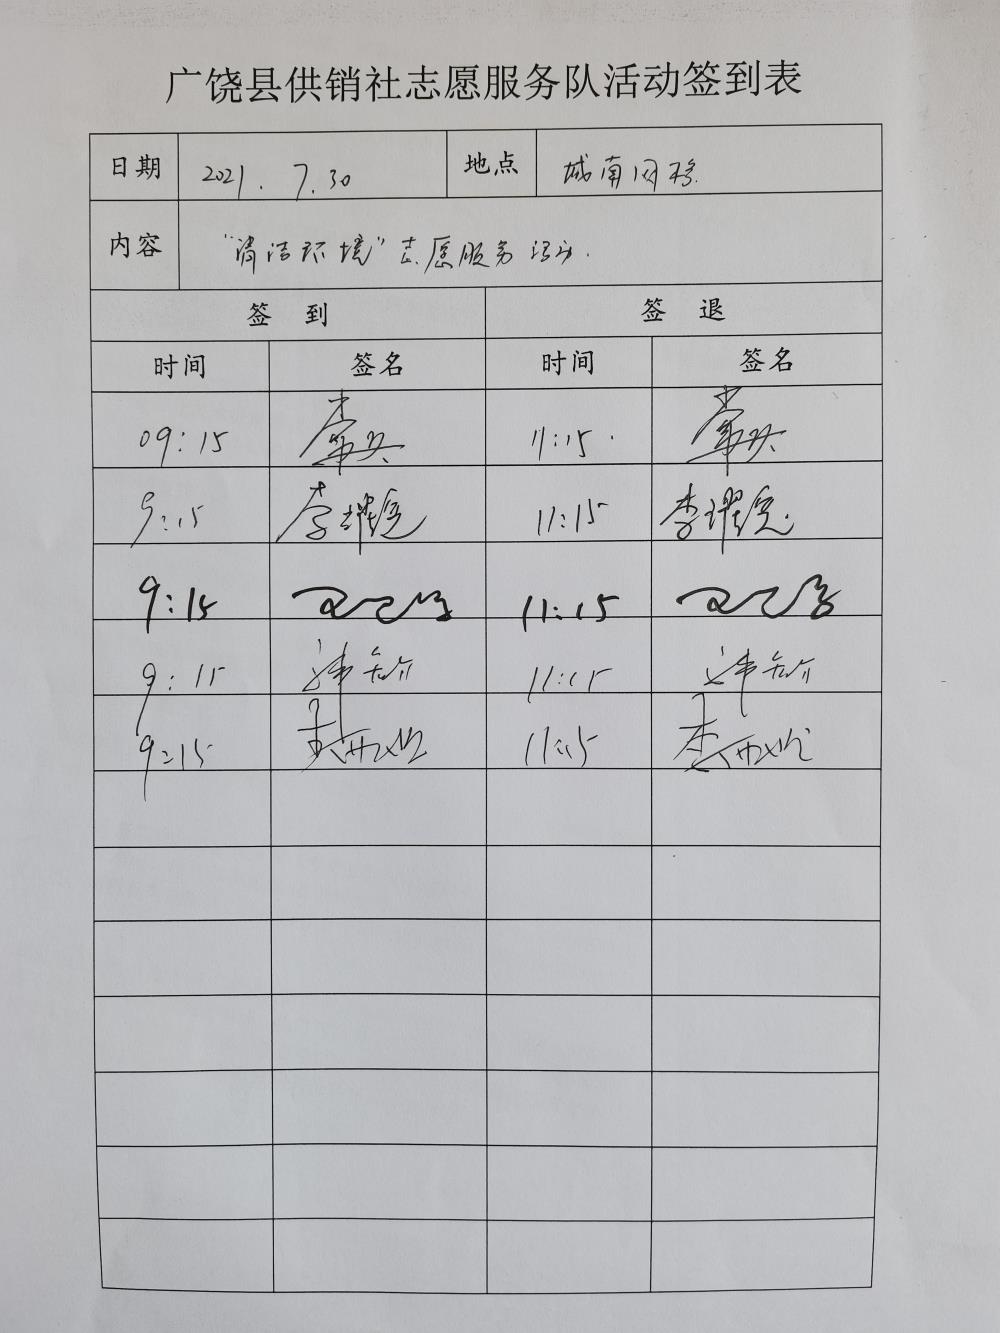 广饶县供销社志愿服务队活动签到表
日期 2021.7.30 地点 城南网格
内容 “清洁环境”志愿服务活动.
签 到 签 退
时间 签名 时间 签名
09:15 11:15.
9:15 李耀 11:15 李耀
9:15 11:15
9:15 11:15
9:15 11:15 李